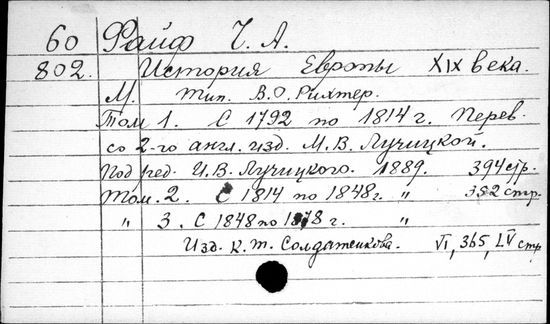 60 Файф Ч. А.
802. История Европы XIX века.
М. тип. В. О. Рихтер.
Том 1. С 1792 по 1814 г. Перев.
со 2-го англ. изд. М. В. Лучицкой.
Под ред. И. В. Лучицкого. 1889. 394 стр.
Том. 2. С 1814 по 1848 г. " 352 стр.
" 3. С 1848 по 1878 г. "
Изд. К. Т. Солдатенкова. VI, 365, LV стр